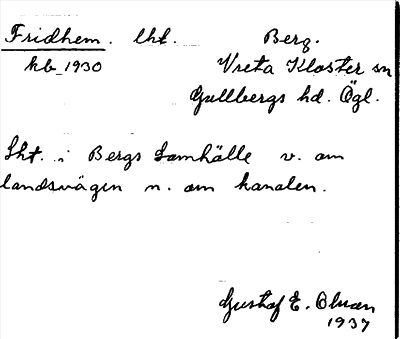 Fridhem. lht. Berg.
kb 1930 Vreta Kloster sn
Gullbergs hd. Ögl.
Lht. i Bergs Samhälle v. om
landsvägen n. om kanalen.
Gustaf E. Olson
1937